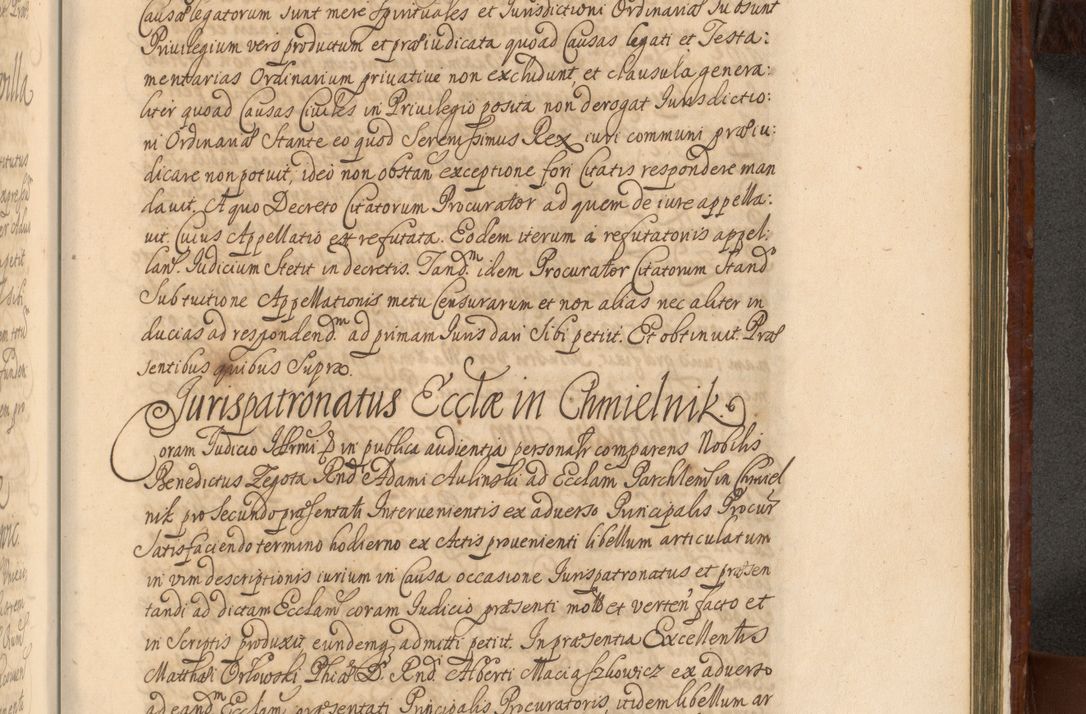 Causæ legatorum sunt mere spirituales et Jurisdictioni Ordinariæ subsunt
Privilegium vero productum et præiudicata quoad Causas legati et Testa:
mentarias Ordinarium privative non excludunt, et clausula genera:
liter quoad Causas Civiles in Privilegio posita non derogat Jurisdictio:
ni Ordinariæ Stante eo quod Serenissimus Rex iuri communi præiu:
dicare non potuit, ideo non obstan exceptione fori Citatis respondere man
davit. A quo Decreto Citatorum Procurator ad quem de iure appella:
vit. Cuius Appellatio est refutata. Eodem iterum à refutatoriis appel:
lan. Judicium Stetit in decretis. Tand.m idem Procurator Citatorum Stand
Sub tuitione Appellationis metu Censurarum et non alias nec aliter in
ducias ad respondend.m ad primam Juris dari Sibi petiit. Et obtinuit. Præ
sentibus quibus Supra.
Jurispatronatus Ecclæ in Chmielnik
Coram Judicio Illrmi D in publica audientia personalr comparens Nobilis
Benedictus Zegota Rndi Adami Aulinski ad Ecclam Parchlem in Chmiel
nik pro Secundo præsentati Intervenientis ex adverso Principalis Procur
Satisfaciendo termino hodierno ex Actis provenienti libellum articulatum
in vim descriptionis iurium in Causa occasione Jurispatronatus et præsen
tandi ad dictam Ecclam coram Judicio præsenti mott et verten facto et
in Scriptis produxit eundemq admitti petiit. In præsentia Excellentis
Matthæi Orłowski Phiæ D. Rndi Alberti Maciaszkowicz ex adverso
ad eand.m Ecclam præsentati Principalis Procuratoris, itidem libellum ar